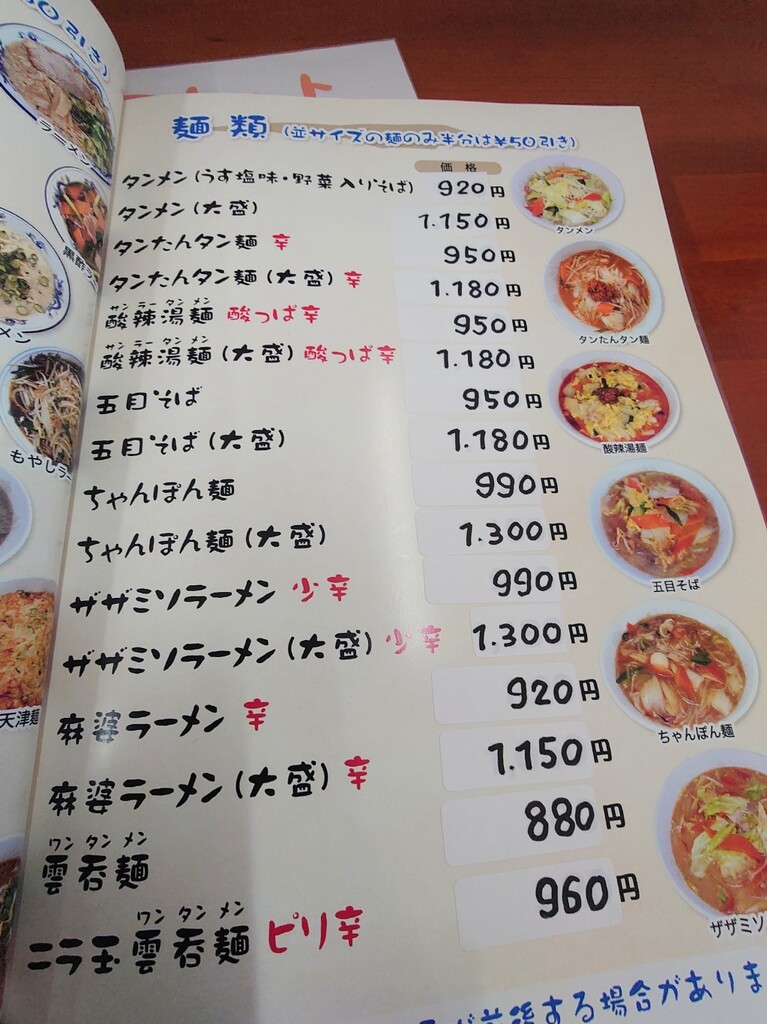 麺類 (並サイズの麺のみ半分は¥50引き)
価格
タンメン(うす塩味・野菜入りそば) 920円
タンメン(大盛) 1.150円
タンたんタン麺 辛 950円
タンたんタン麺(大盛) 辛 1.180円
サンラータンメン
酸辣湯麺 酸っぱ辛 950円
サンラータンメン
酸辣湯麺(大盛) 酸っぱ辛 1.180円
五目そば 950円
五目そば(大盛) 1.180円
ちゃんぽん麺 990円
ちゃんぽん麺(大盛) 1.300円
ザザミソラーメン 少辛 990円
ザザミソラーメン(大盛) 少辛 1.300円
麻婆ラーメン 辛 920円
麻婆ラーメン(大盛) 辛 1.150円
ワンタンメン
雲呑麺 880円
ワンタンメン
ニラ玉雲呑麺 ピリ辛 960円
タンメン
タンたんタン麺
酸辣湯麺
五目そば
ちゃんぽん麺
ザザミソ
する場合がありま
引き)
ラーメン
黒酢
メン
もやしラー
天津麺